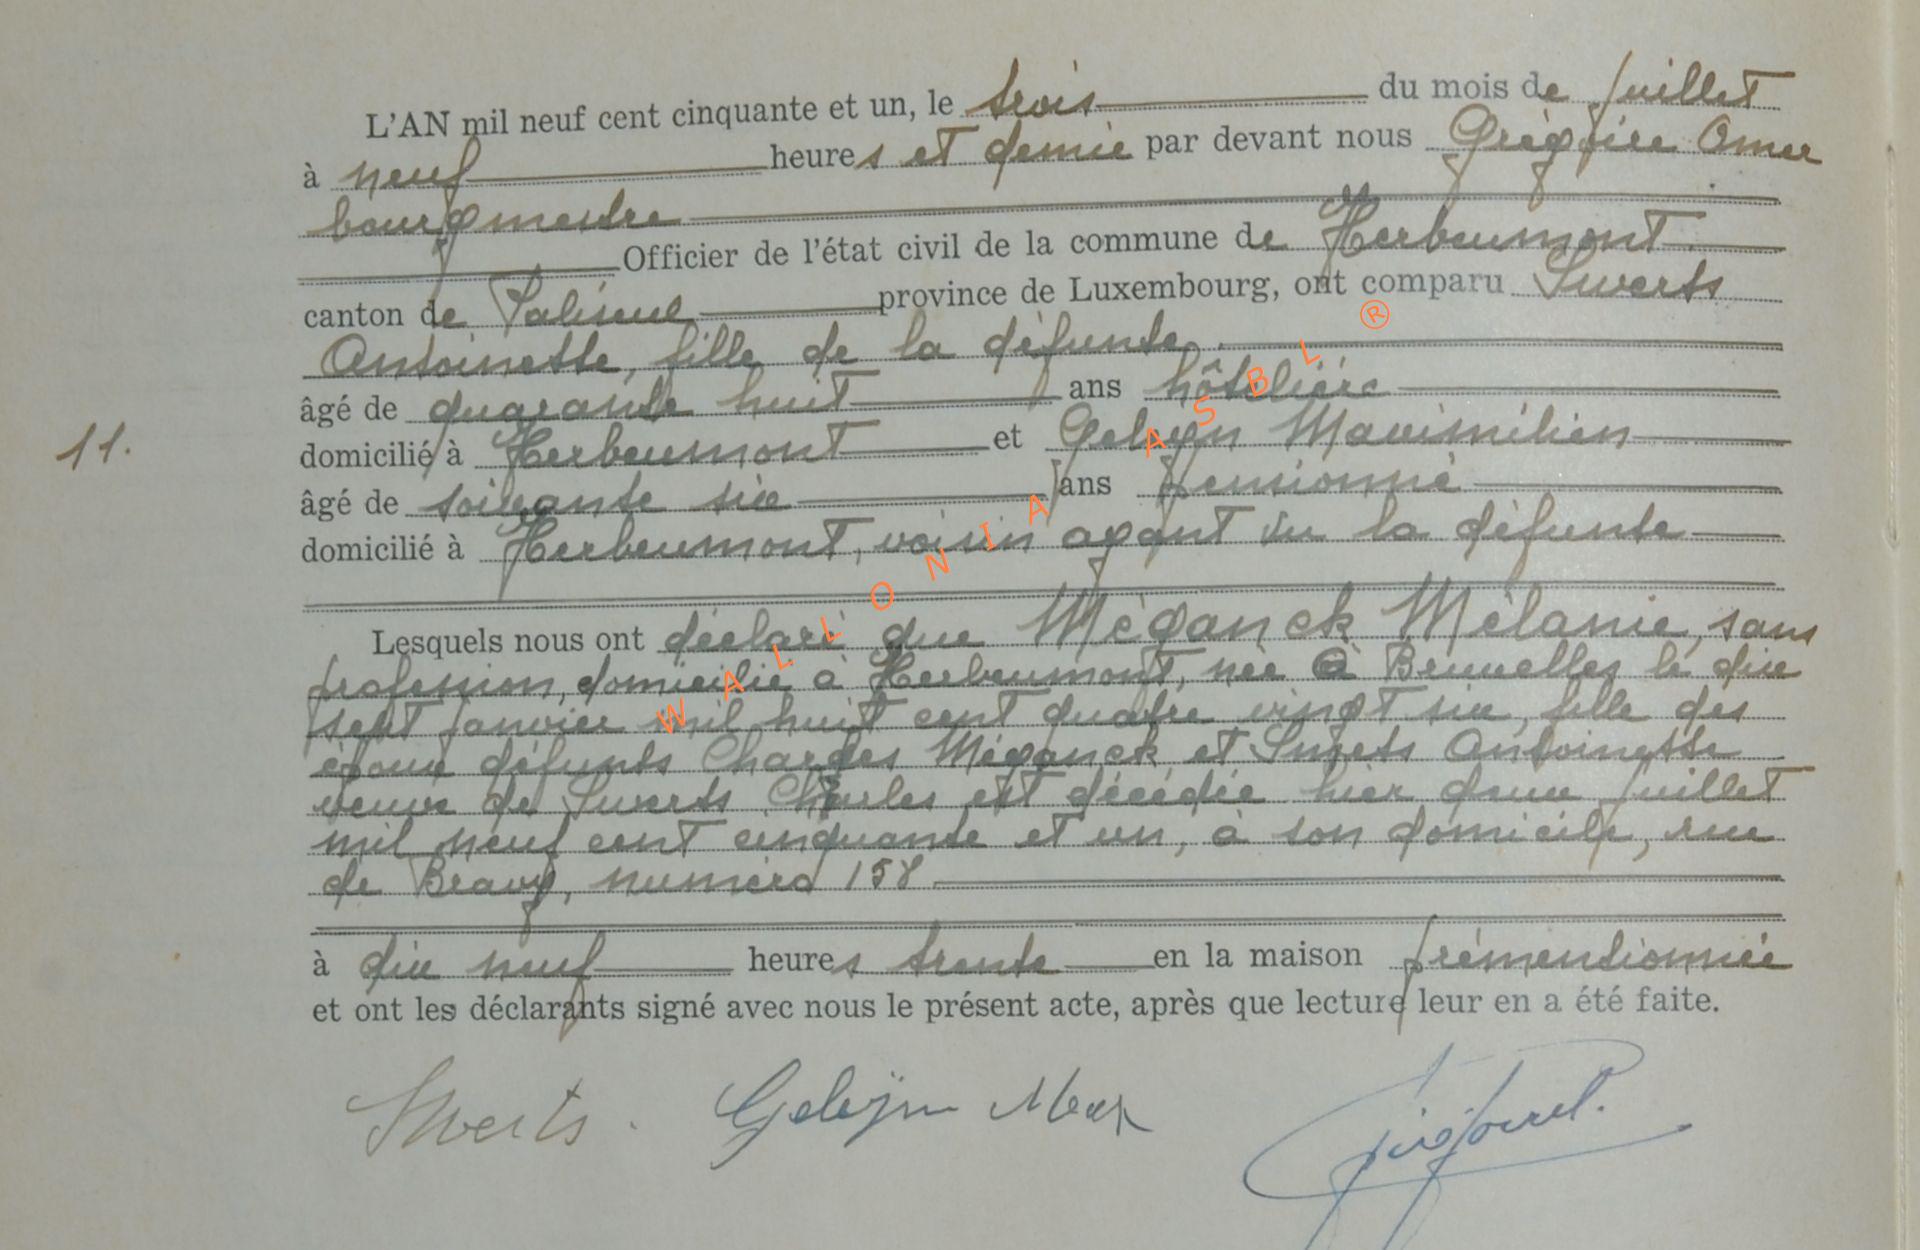 L'AN mil neuf cent cinquante et un, le trois du mois de juillet
à neuf heures et demie par devant nous Grégoire Omer
bourgmestre
Officier de l'état civil de la commune de Herbeumont
canton de Paliseul province de Luxembourg, ont comparu Swerts
Antoinette, fille de la défunte,
âgé de quarante huit ans hôtelière
domicilié à Herbeumont et Geleyn Maximilien
11.
âgé de soixante six ans pensionné
domicilié à Herbeumont, voisin ayant vu la défunte
Lesquels nous ont déclaré que Méganck Mélanie, sans
profession, domicilié à Herbeumont, née à Bruxelles le dix
sept janvier mil huit cent quatre vingt six, fille des
époux défunts Charles Méganck et Smets Antoinette
veuve de Swerts Charles est décédée hier deux juillet
mil neuf cent cinquante et un, à son domicile, rue
de Bravy, numéro 158
à dix neuf heures trente en la maison prémentionnée
et ont les déclarants signé avec nous le présent acte, après que lecture leur en a été faite.
Swerts. Geleyn Max
WALLONIA ASBL ®